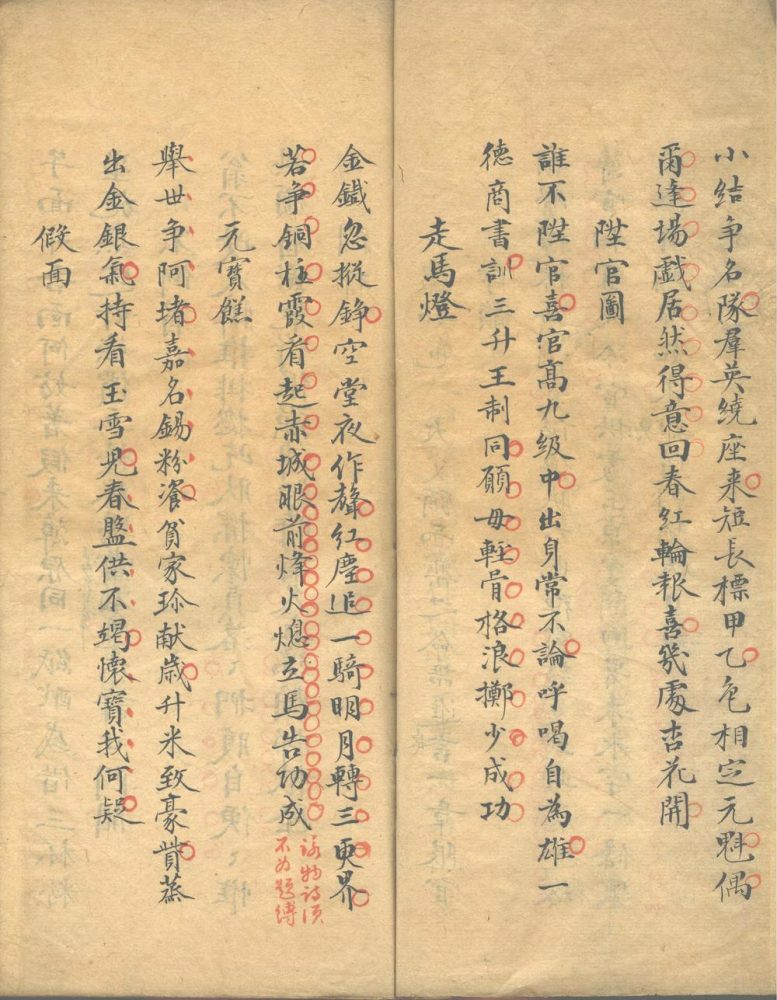 小結争名隊羣英繞座来短長標甲乙色相定元魁偶
爾達場戯居然得意回春紅輪報喜幾處杏花開
陞官圖
誰不陞官喜官髙九級中出身常不論呼喝自為雄一
德商書訓三升王制同願毋輕骨格浪擲少成功
走馬燈
金鐡忽摐錚空堂夜作聲紅塵追一騎明月轉三更界
若争銅柱霞看起赤城眼前烽火熄立馬告功成
詠物詩須
不為題縛
元寳餻
舉世争阿堵嘉名錫粉餈貧家珍献歳升米致豪貲蒸
出金銀氣持看玉雪皃春盤供不竭懷寶我何疑
假面